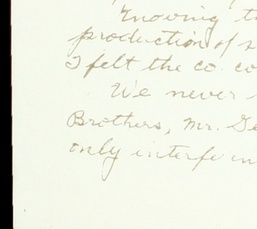 Knowing t
production of s
I felt the co. co
We never
Brothers, Mr. Ge
only interfe in